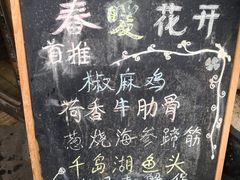 春暖花开
首推
椒麻鸡
荷香牛肋骨
葱烧海参蹄筋
千岛湖鱼头